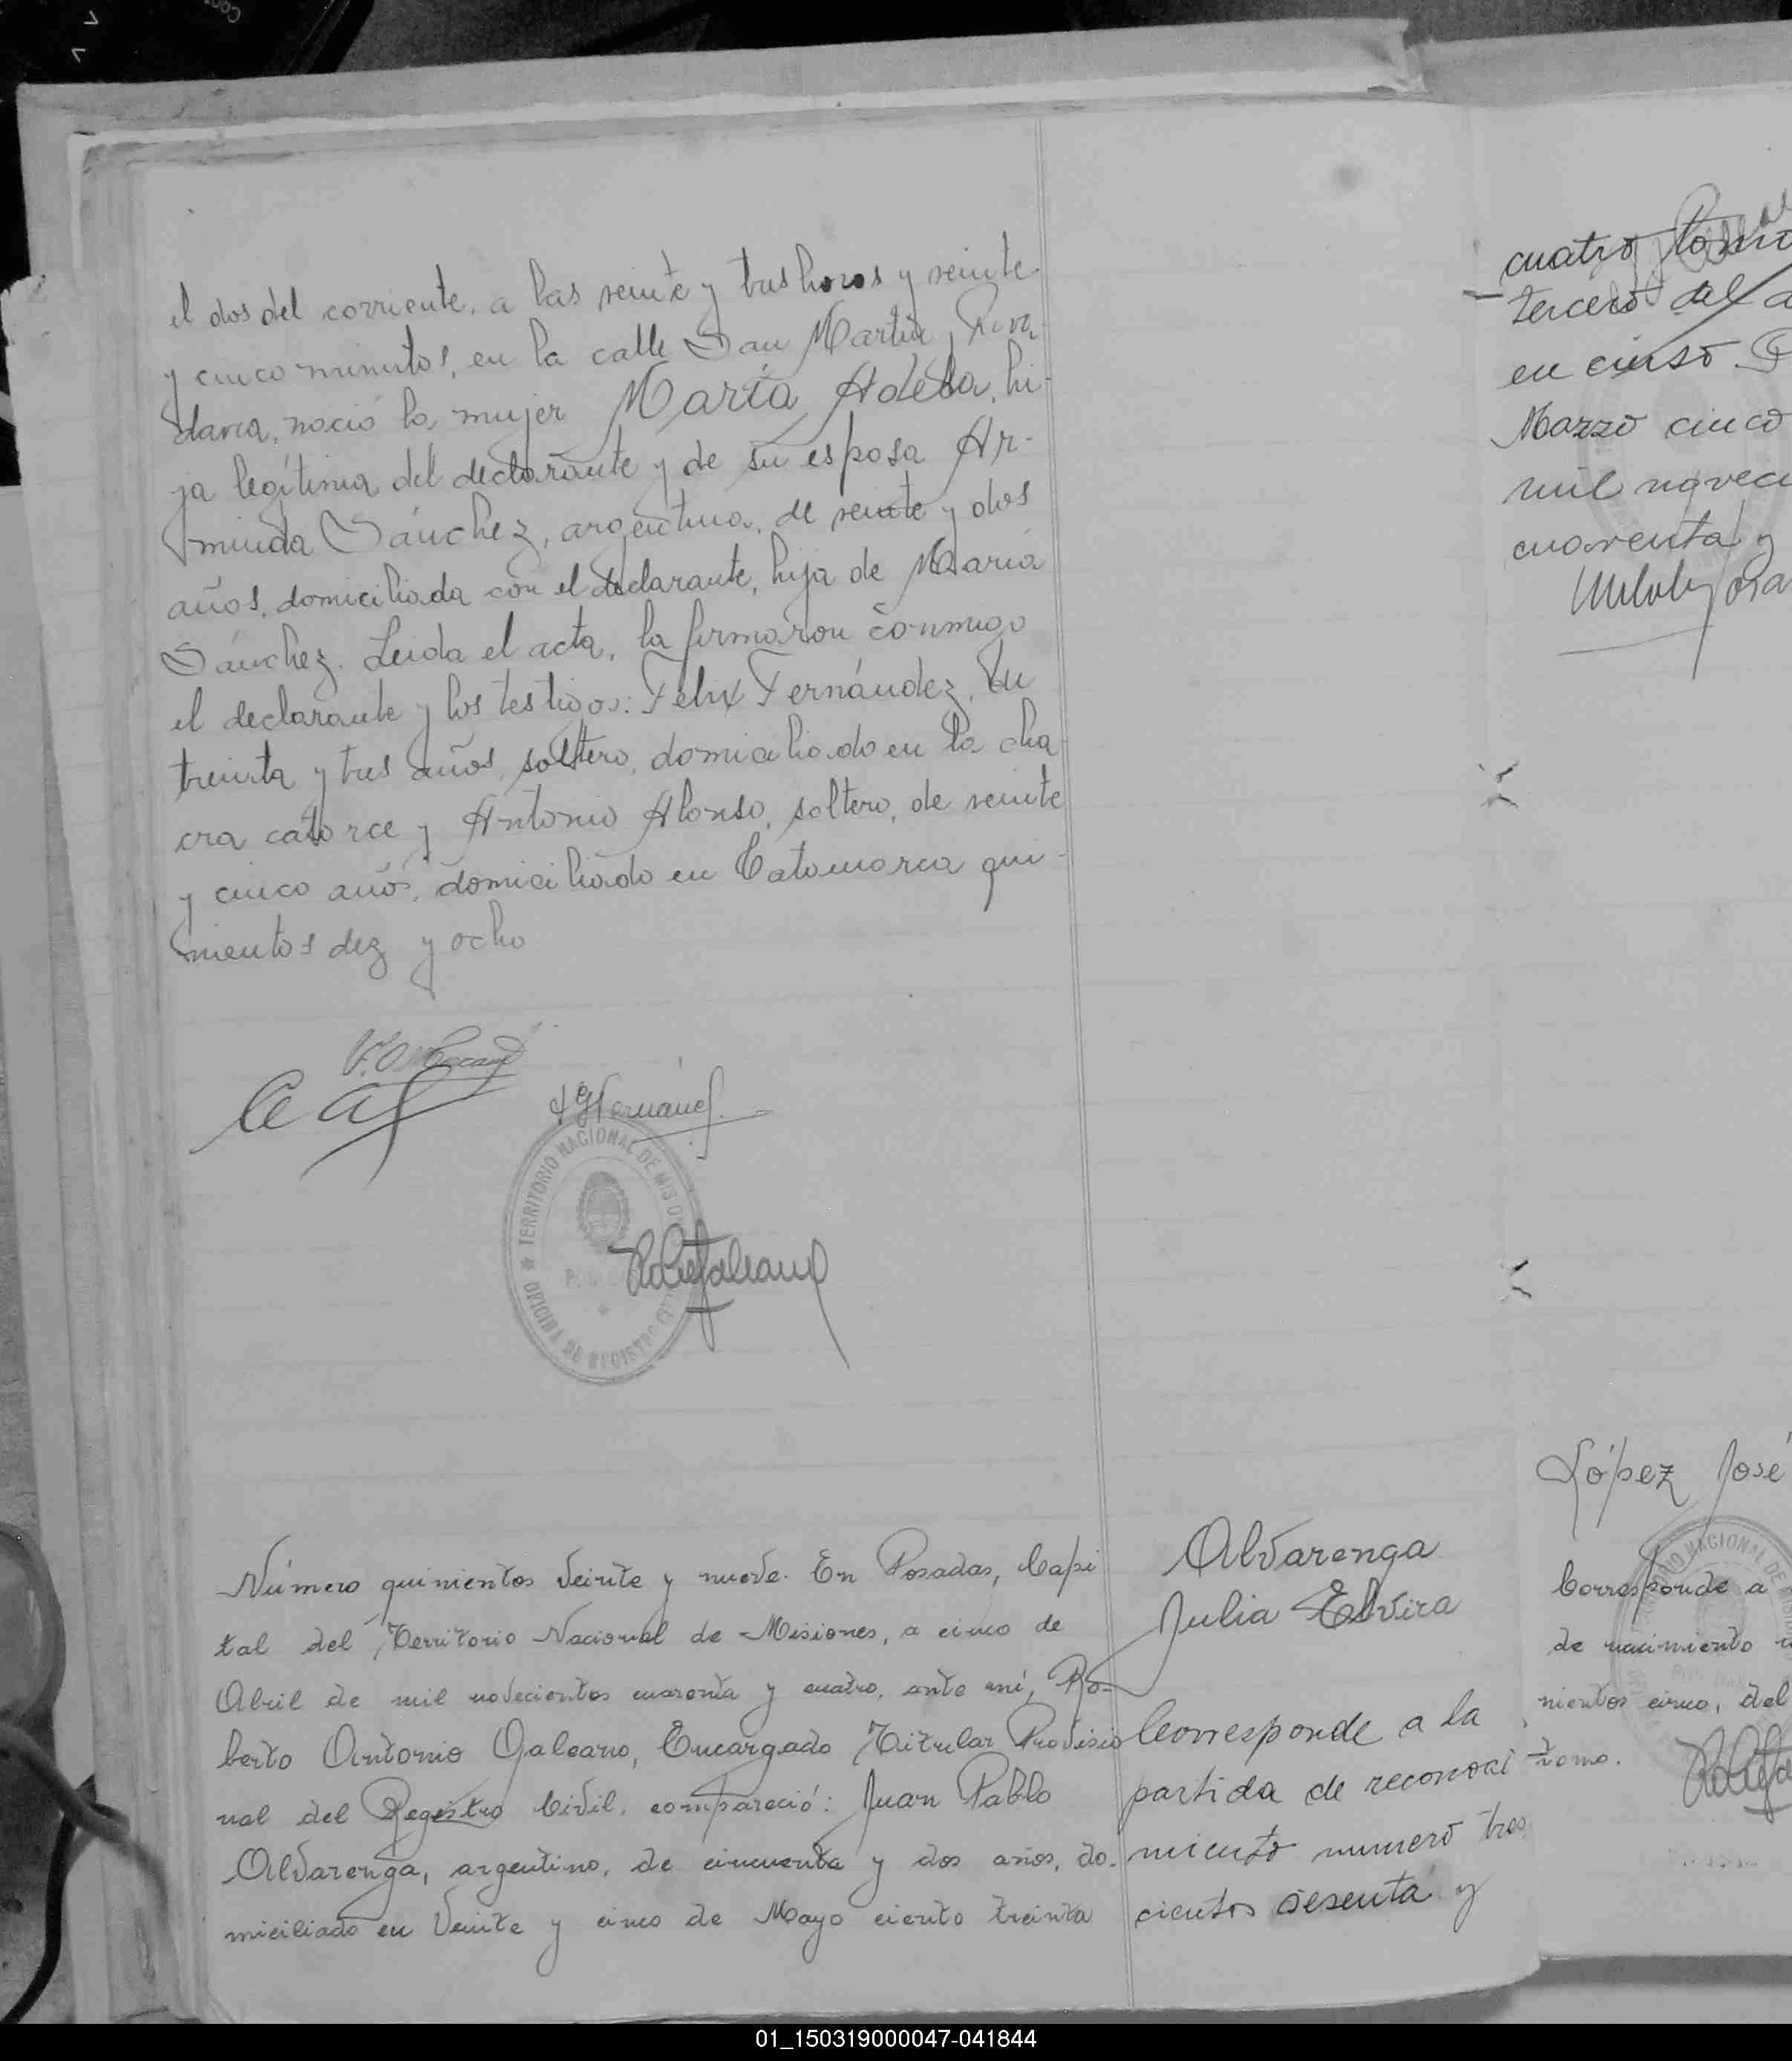 el dos del corriente, a las veinte y tres horas y veinte
y cinco minutos, en la calle San Martín, Riva
davia, nació la mujer María Adela, hi-
ja legítima del declarante y de su esposa Ar-
minda Sánchez, argentina, de veinte y dos
años, domiciliada con el declarante, hija de María
Sánchez. Leida el acta, la firmaron conmigo
el declarante y los testigos: Felix Fernández, de
treinta y tres años, soltero, domiciliado en la cha
cra catorce y Antonio Alonso, soltero, de veinte
y cinco años, domiciliado en Catamarca qui-
nientos diez y ocho
TERRITORIO NACIONAL DE MISIONES
OFICINA DE REGISTRO
Número quinientos veinte y nueve. En Posadas, Capi
tal del Territorio Nacional de Misiones, a cinco de
Abril de mil novecientos cuarenta y cuatro, ante mí, Ro-
berto Antonio Galeano, Encargado Titular Provisio
nal del Registro Civil, compareció: Juan Pablo
Alvarenga, argentino, de cincuenta y dos años, do-
miciliado en Veinte y cinco de Mayo ciento treinta
Alvarenga
Julia Elvira
Corresponde a la
partida de reconoci
miento numero tres
cientos sesenta y
cuatro tomo
tercero del a
en curso
Marzo cinco
mil noveci
cuarenta y
López José
NACIONAL DE
Corresponde a
de nacimiento
nientos cinco, del
tomo.
01_150319000047-041844